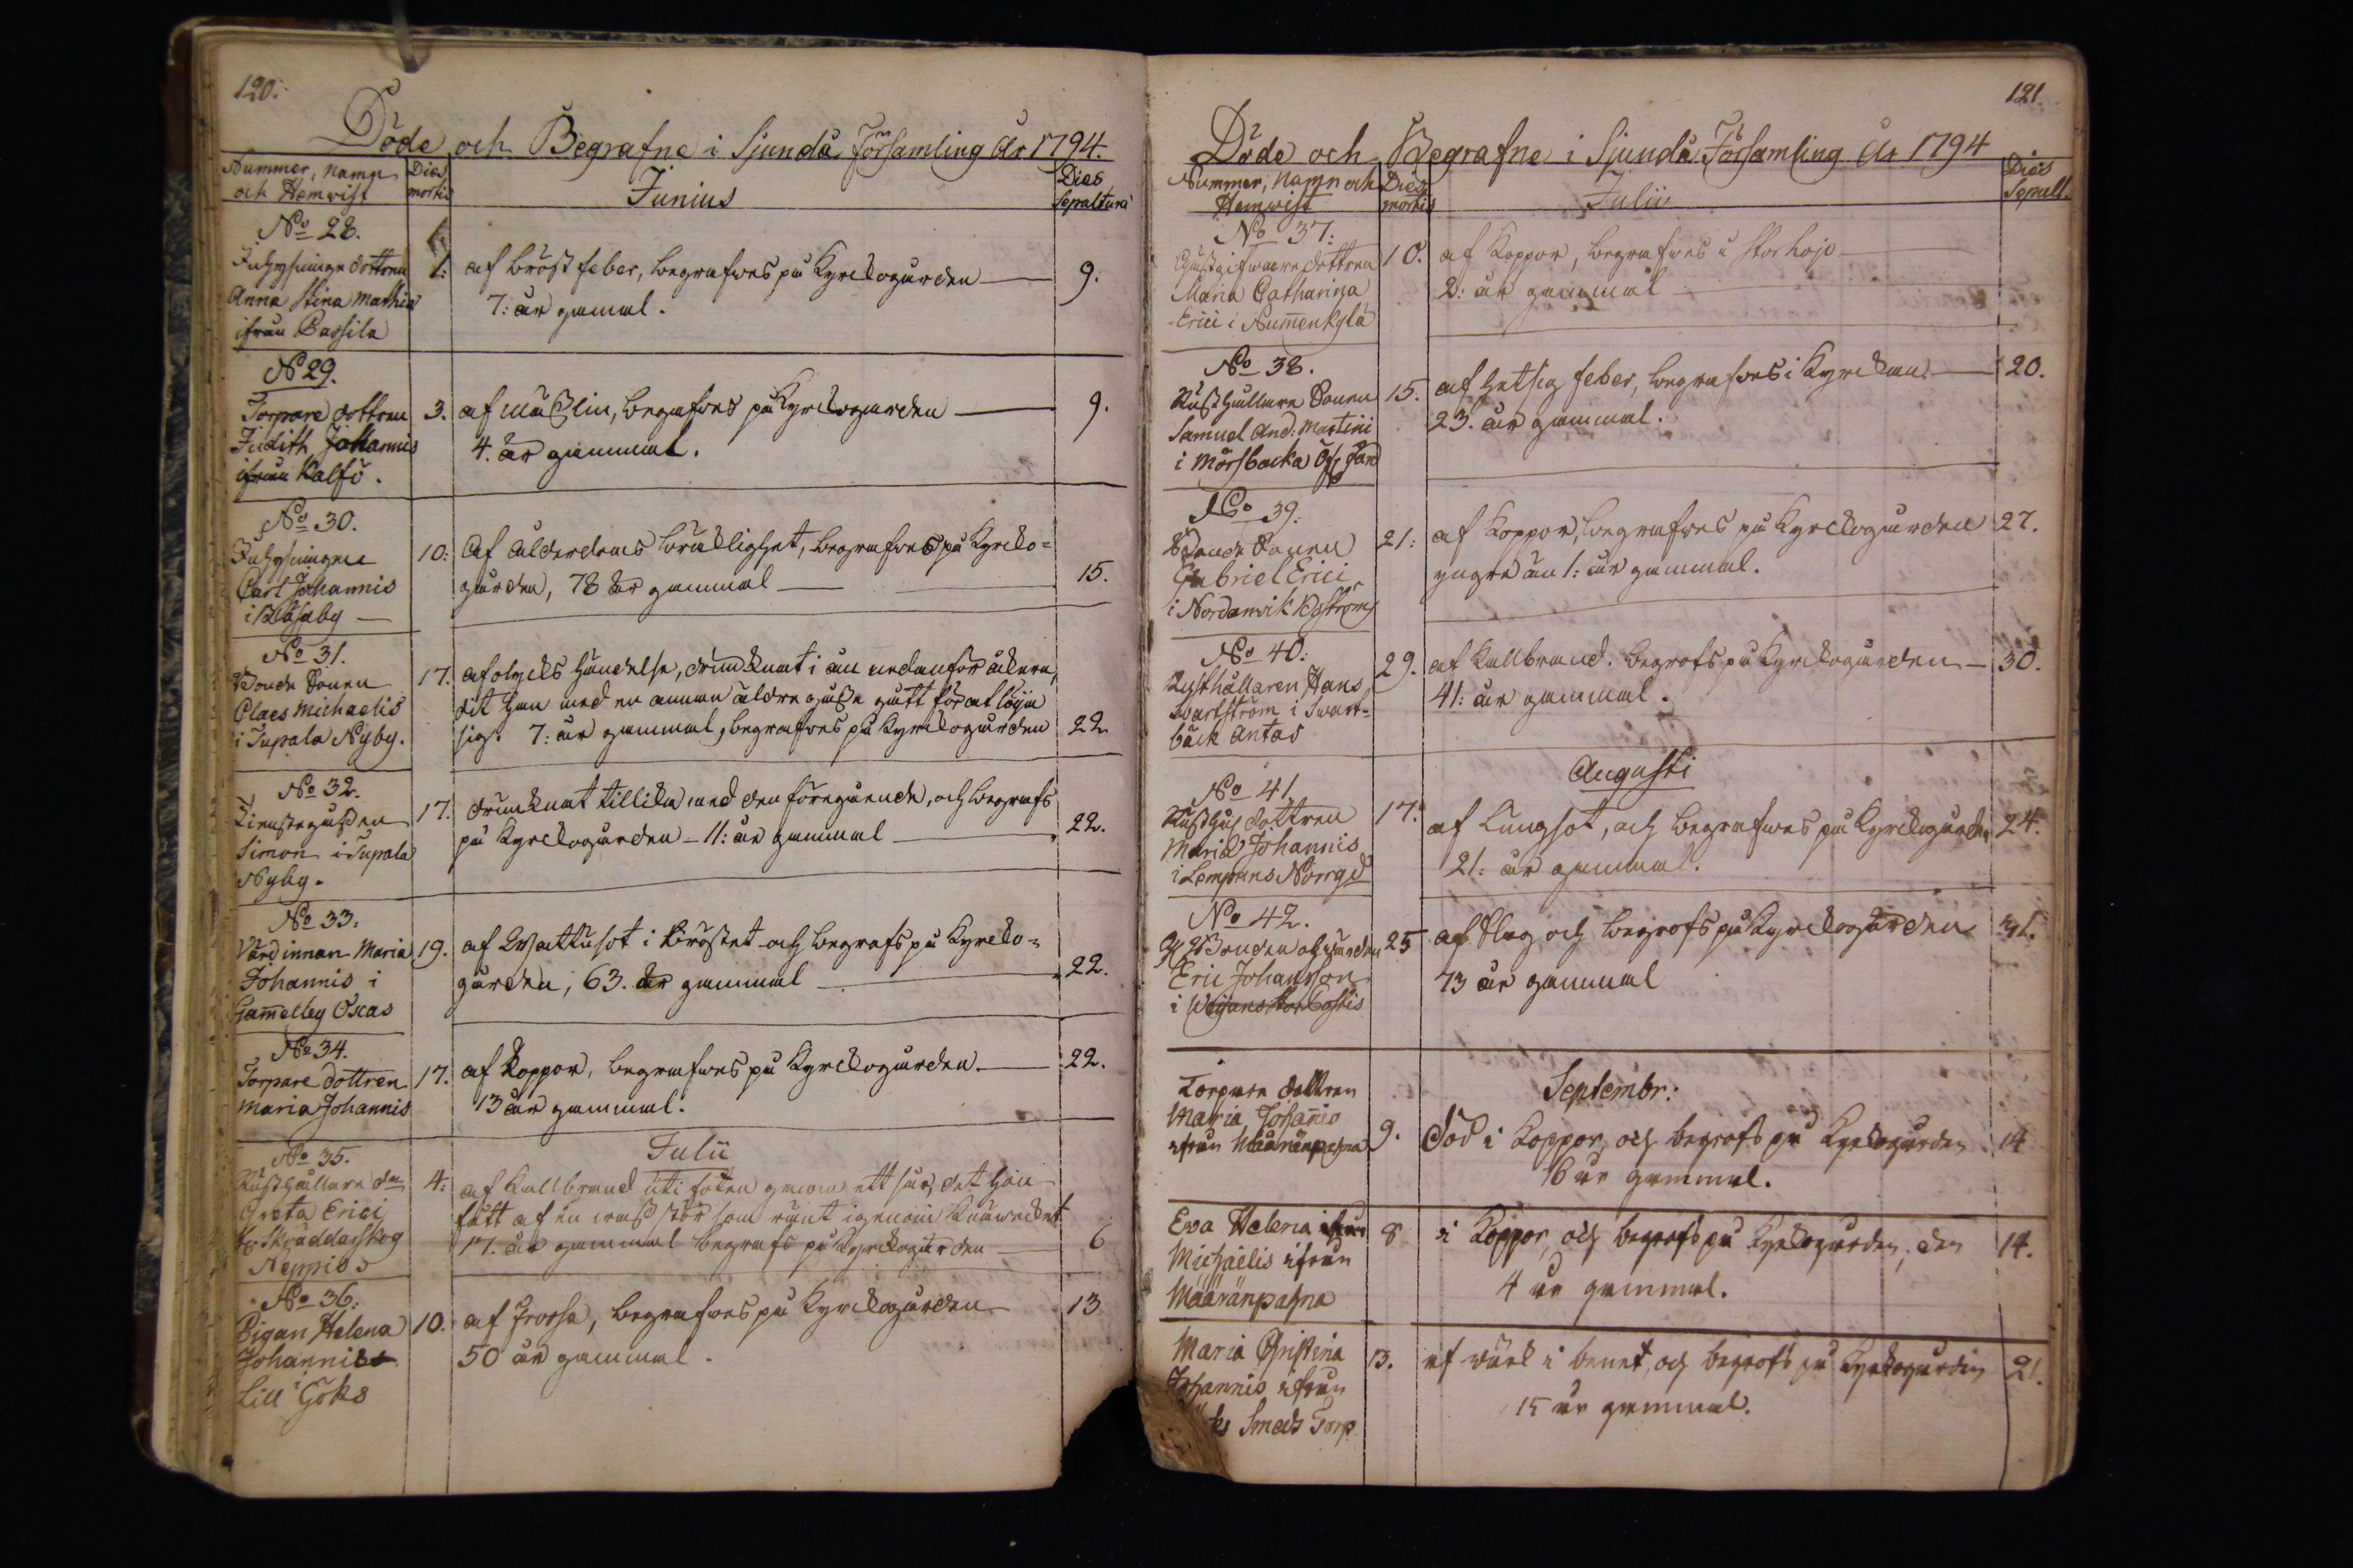 120.
Döde och Begrafne i Sjundå Församling År 1794.
Nummer, namn
och Hemvist
Dies
mortis
Junius
Dies
Sepulturæ
No 28.
Inhysinge dottren
Anna Stina Mathiæ
ifrån Passila
1:
af bröstfeber, begrafwes på Kyrckogården
7: år gamal.
9.
No 29.
Torpare dottren
Judith Johannis
ifrån Kalfö.
3.
af mässlin, begrafwes på Kyrckogården
4. år gammal.
9.
No 30.
Inhysingen
Carl Johannis
i
10:
Af ålderdoms bräcklighet, begrafwes på Kyrcko=
gården, 78 år gammal
15.
No 31.
Bonde Sonen
Claes Michaelis
i Tupala Nyby.
17.
af olycks händelse, drunknat i ån nedanför åkern,
dit han med en annan äldre gosse gått för at löga
sig. 7: år gammal, begrafwes på Kyrckogården
22
No 32.
Tienstegossen
Simon i Tupala
Nyby.
17.
drunknat tillika med den föregående, och begrafs
på Kyrckogården - 11: år gammal
22.
No 33.
Värdinnan Maria
Johannis i
Gam̄elby Oscas
19.
af Wattusot i Bröstet och begrafs på Kyrcko=
gården, 63. år gammal
22.
No 34.
Torpare dottren
Maria Johannis
17.
af koppor, begrafwes på Kyrckogården.
13 år gammal.
22.
Julii
No 35.
Rusthållare
Greta Erici
Skräddarskog
Neppis
4:
af Kallbrand uti foten genom ett sår, det hon
fått af en som ränt igenom
17. år gammal begrafs på Kyrckogården
6
No 36.
Pigan Helena
Johannis
Lill Göks
10.
af frossa, begrafwes på Kyrckogården
50 år gammal.
13
121.
Döde och Begrafne i Sjundå Församling År 1794
Nummer, Namn och
Hemvist
Dies
mortis
Julii
Dies
Sepult.
No 37:
dottren
Maria Catharina
Erici i Num̄enkylä
10.
af Koppor, begrafwes i Storhoje
2: år gammal
No 38.
Rusthållare Sonen
Samuel And: Martini
i Mörsbacka
15.
af hetsig feber, begrafwes i Kyrckan
23. år gammal.
20.
No 39.
Bonde Sonen
Gabriel Erici
i Nordanvik Boströms
21:
af Koppor, begrafwes på Kyrckogården
yngre än 1: år gammal.
27.
No 40.
Rusthållaren Hans
Swartström i Swart=
bäck Antas
29.
af Kallbrand. begrofs på Kyrckogården
41: år gammal.
30.
Augusti
No 41
Rusth: dottren
Maria Johannis
i Lempans Norrgd
17.
af Lungsot, och begrafwes på Kyrckogården
21: år gammal.
24.
No 42.
Bonden
Eric Johansson
i
25
af Slag och begrofs på Kyrckogården
73 år gammal
31.
Septembr:
Torpare dottren
Maria Johan̄is
ifrån Määränpahna
9.
död i Koppor, och begrofs på Kyrkogården
16 år gammal.
14
Eva Helena
Michaelis ifrån
Määränpahna
8
i Koppor, och begrofs på Kyrkogården, den
4 år gammal.
14.
Maria Christina
Johannis ifrån
Smeds Torp
13.
af wärk i benet, och begrofs på Kyrkogården
15 år gammal.
21.